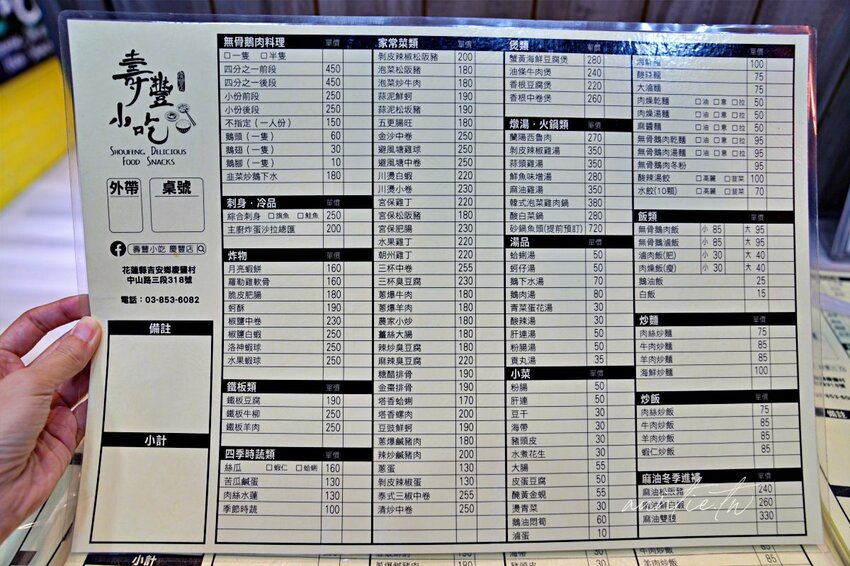 壽豐小吃
SHOUFENG DELICIOUS
FOOD SNACKS
外帶
桌號
壽豐小吃 慶豐店
花蓮縣吉安鄉慶豐村
中山路三段318號
電話：03-853-6082
備註
小計
無骨鵝肉料理 單價
□一隻 □半隻
四分之一前段 450
四分之一後段 450
小份前段 250
小份後段 250
不指定(一人份) 150
鵝頭(一隻) 60
鵝翅(一隻) 30
鵝腳(一隻) 10
韭菜炒鵝下水 180
刺身．冷品 單價
綜合刺身 □旗魚 □鮭魚 250
主廚炸蛋沙拉總匯 200
炸物 單價
月亮蝦餅 160
羅勒雞軟骨 160
脆皮肥腸 180
蚵酥 190
椒鹽中卷 230
椒鹽白蝦 250
洛神蝦球 250
水果蝦球 250
鐵板類 單價
鐵板豆腐 190
鐵板牛柳 250
鐵板羊肉 250
四季時蔬類 單價
絲瓜 □蝦仁 □蛤蜊 160
苦瓜鹹蛋 130
肉絲水蓮 130
季節時蔬 100
家常菜類 單價
剝皮辣椒松阪豬 200
泡菜松阪豬 180
泡菜炒牛肉 180
蒜泥鮮蚵 190
蒜泥松坂豬 180
五更腸旺 180
金沙中卷 250
避風塘雞球 250
避風塘中卷 250
川燙白蝦 220
川燙小卷 230
宮保雞丁 220
宮保松阪豬 180
宮保肥腸 230
水果雞丁 220
朝州雞丁 220
三杯中卷 255
三杯臭豆腐 230
蔥爆牛肉 180
蔥爆羊肉 180
農家小炒 180
薑絲大腸 180
辣炒臭豆腐 220
麻辣臭豆腐 220
糖醋排骨 190
金棗排骨 190
塔香蛤蜊 170
塔香螺肉 200
豆豉鮮蚵 190
蔥爆鹹豬肉 180
辣炒鹹豬肉 200
蔥蛋 130
剝皮辣椒蛋 130
泰式三椒中卷 255
清炒中卷 250
煲類 單價
蟹黃海鮮豆腐煲 280
油條牛肉煲 240
香根豆腐煲 220
香根中卷煲 260
燉湯．火鍋類 單價
蘭陽西魯肉 270
剝皮辣椒雞湯 350
蒜頭雞湯 350
鮮魚味增湯 280
麻油雞湯 350
韓式泡菜雞肉鍋 380
酸白菜鍋 280
砂鍋魚頭(提前預訂) 720
湯品 單價
蛤蜊湯 50
蚵仔湯 50
鵝下水湯 70
鵝肉湯 80
青菜蛋花湯 30
酸辣湯 30
肝連湯 50
粉腸湯 50
貢丸湯 35
小菜 單價
粉腸 50
肝連 50
豆干 30
海帶 30
豬頭皮 50
水煮花生 30
大腸 55
皮蛋豆腐 50
醃黃金蜆 55
燙青菜 30
鵝油悶筍 60
滷蛋 10
海鮮麵 100
酸辣麵 75
大滷麵 75
肉燥乾麵 □油 □意 □拉 50
肉燥湯麵 □油 □意 □拉 50
麻醬麵 □油 □意 □拉 50
無骨鵝肉乾麵 □油 □意 □拉 95
無骨鵝肉湯麵 □油 □意 □拉 95
無骨鵝肉冬粉 95
酸辣湯餃 □高麗 □韭菜 100
水餃(10顆) □高麗 □韭菜 70
飯類 單價
無骨鵝肉飯 小 85 大 95
無骨鵝滷飯 小 85 大 95
滷肉飯(肥) 小 30 大 40
肉燥飯(瘦) 小 30 大 40
鵝油飯 25
白飯 15
炒麵 單價
肉絲炒麵 75
牛肉炒麵 85
羊肉炒麵 85
海鮮炒麵 100
炒飯 單價
肉絲炒飯 75
牛肉炒飯 85
羊肉炒飯 85
蝦仁炒飯 85
麻油冬季進補 單價
麻油松阪豬 240
260
麻油雙 330